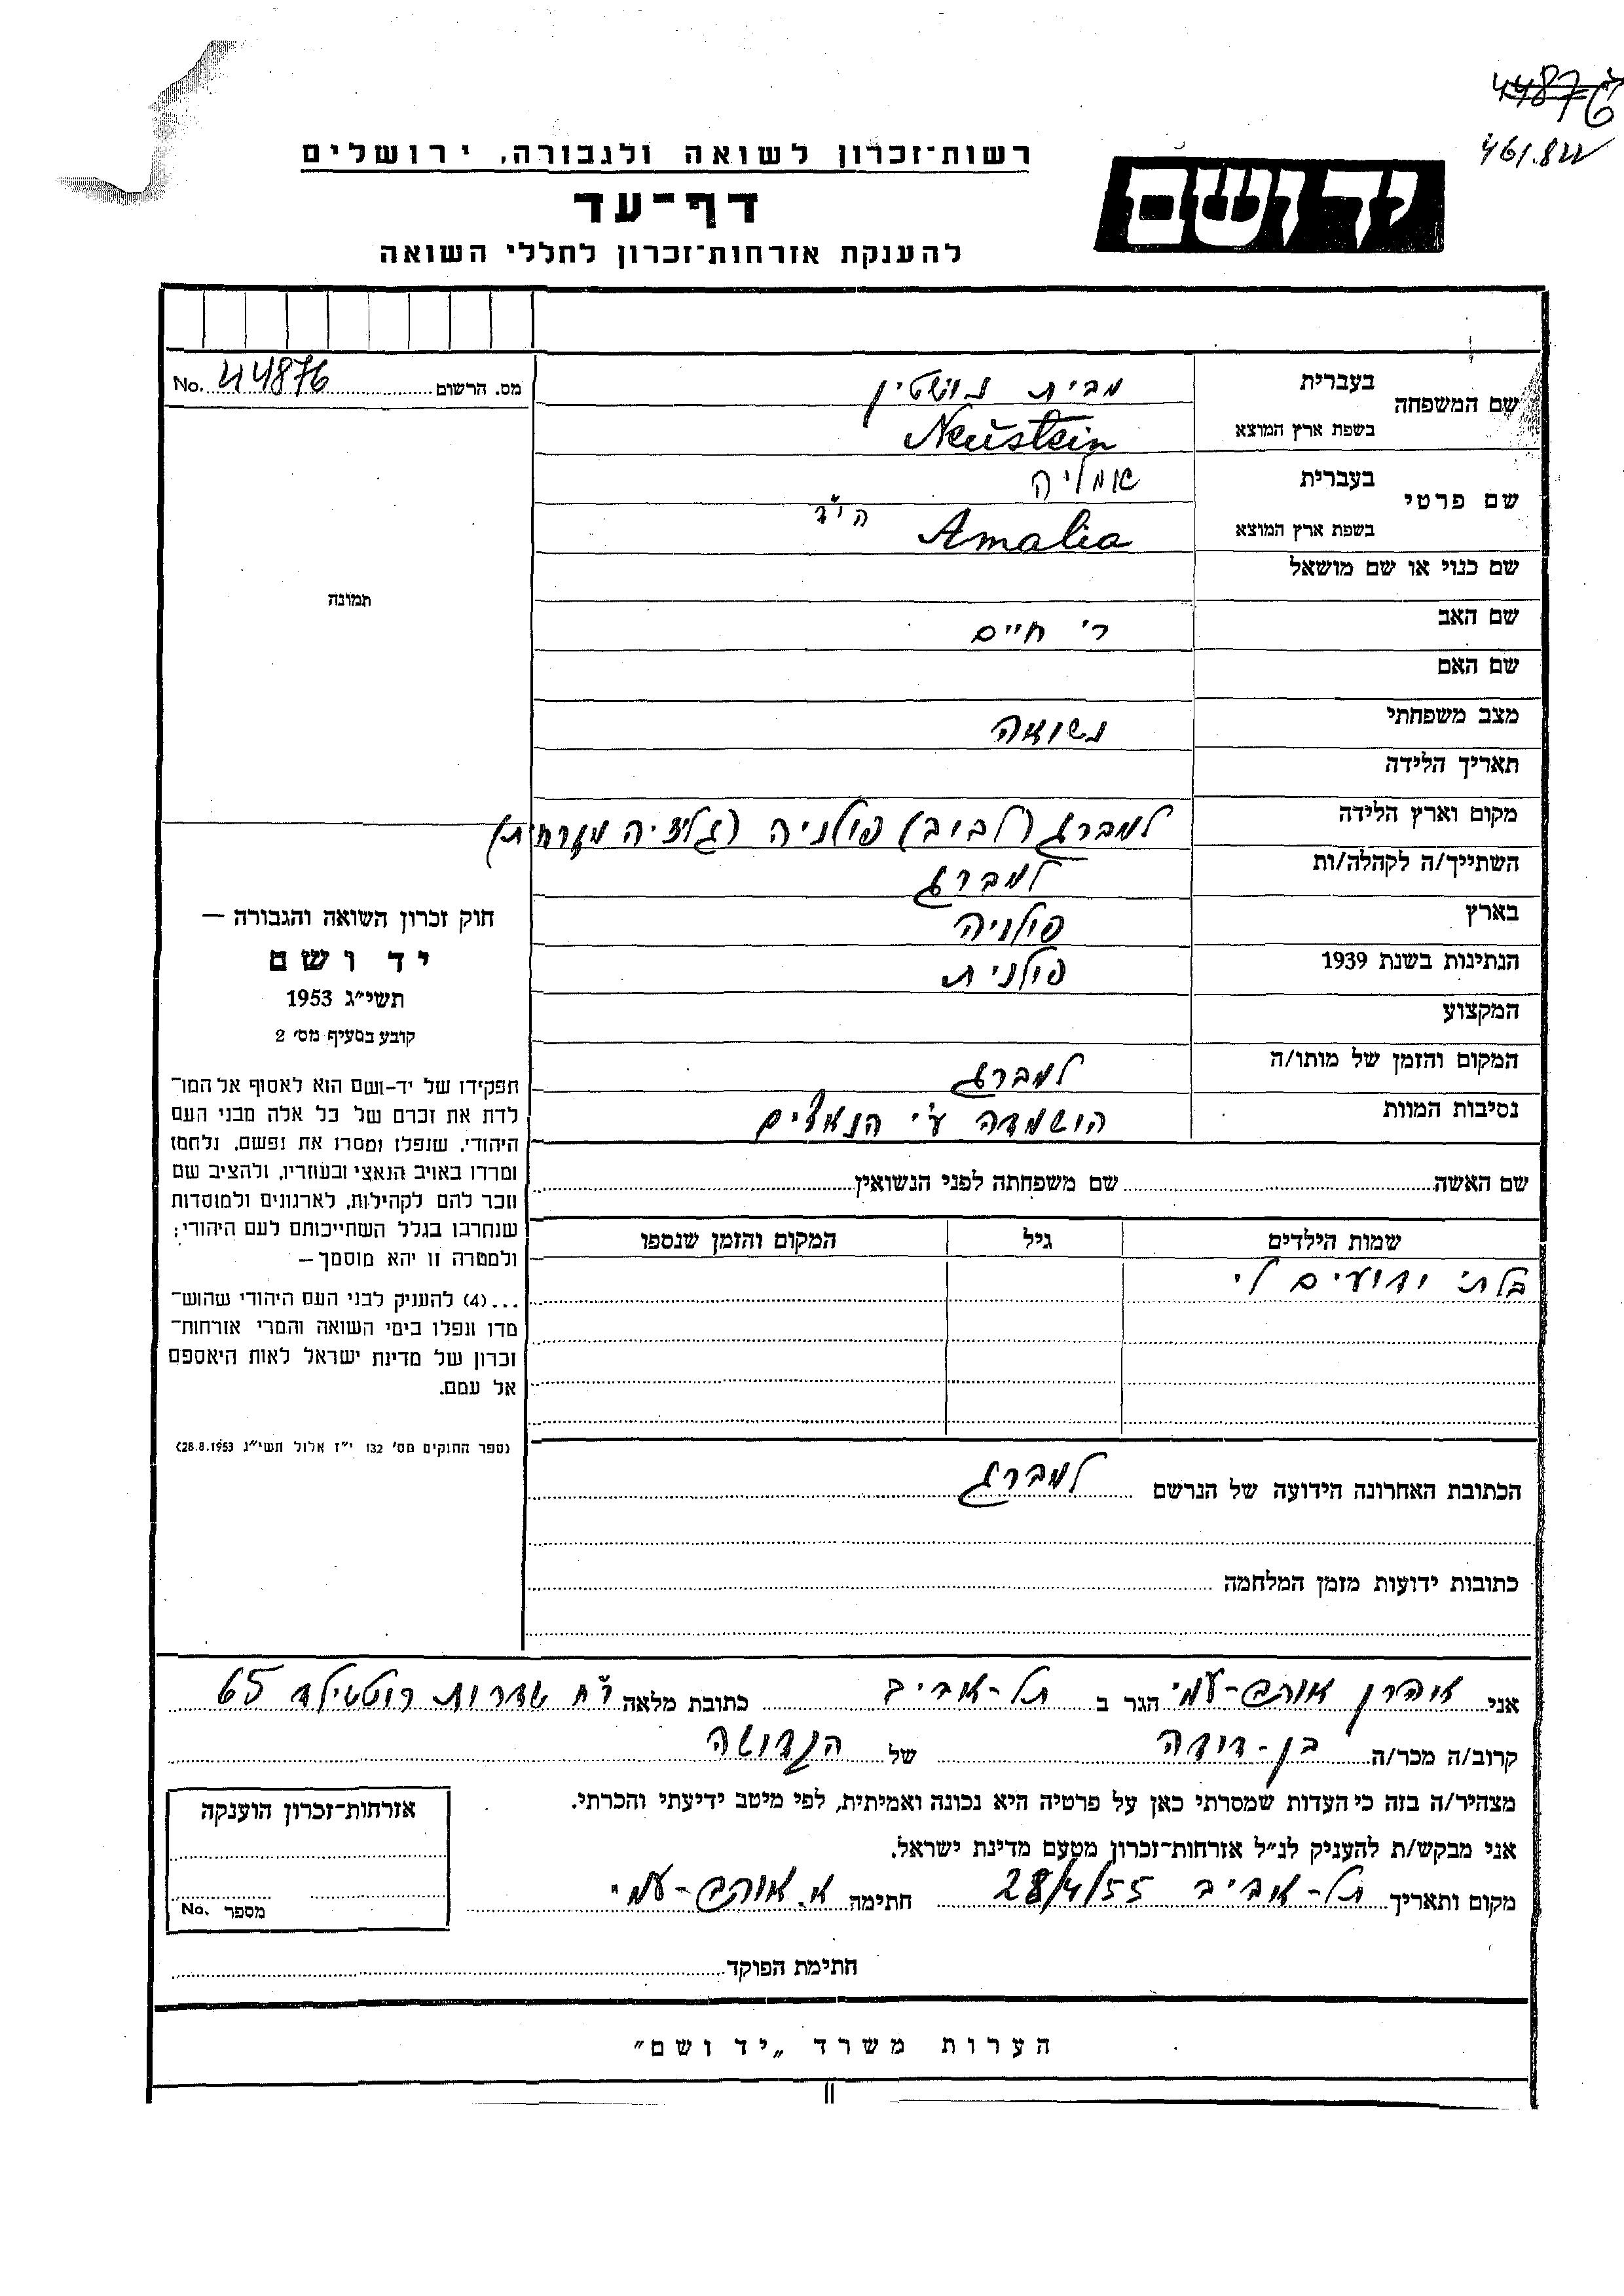 44876
461.822
רשות־זכרון לשואה ולגבורה, ירושלים
יד ושם
דף־עד
להענקת אזרחות־זכרון לחללי השואה
מס. הרשום 44876 No.
שם המשפחה
בעברית מבית נוישטין
בשפת ארץ המוצא Neustein
שם פרטי
בעברית אמליה
בשפת ארץ המוצא Amalia הי"ד
שם כנוי או שם מושאל
שם האב ר' חיים
שם האם
מצב משפחתי נשואה
תאריך הלידה
מקום וארץ הלידה למברג (לביב) פולניה (גליציה מזרחית)
השתייך/ה לקהלה/ות למברג
בארץ פולניה
הנתינות בשנת 1939 פולנית
המקצוע
המקום והזמן של מותו/ה למברג
נסיבות המוות הושמדה ע"י הנאצים
שם האשה שם משפחתה לפני הנשואין
שמות הילדים גיל המקום והזמן שנספו
בלתי ידועים לי
הכתובת האחרונה הידועה של הנרשם למברג
כתובות ידועות מזמן המלחמה
תמונה
חוק זכרון השואה והגבורה —
יד ושם
תשי״ג 1953
קובע בסעיף מס׳ 2
תפקידו של יד-ושם הוא לאסוף אל המו־
לדת את זכרם של כל אלה מבני העם
היהודי, שנפלו ומסרו את נפשם, נלחמו
ומרדו באויב הנאצי ובעוזריו, ולהציב שם
וזכר להם לקהילות, לארגונים ולמוסדות
שנחרבו בגלל השתייכותם לעם היהודי;
ולמטרה זו יהא מוסמך —
...(4) להעניק לבני העם היהודי שהוש־
מדו ונפלו בימי השואה והמרי אזרחות־
זכרון של מדינת ישראל לאות היאספם
אל עמם.
(ספר החוקים מס׳ 132 י״ז אלול תשי״ג 28.8.1953)
אני אהרן אוהב-עמי הגר ב תל-אביב כתובת מלאה רח' שדרות רוטשילד 65
קרוב/ה מכר/ה בן-דודה של הנדושה
מצהיר/ה בזה כי העדות שמסרתי כאן על פרטיה היא נכונה ואמיתית, לפי מיטב ידיעתי והכרתי.
אני מבקש/ת להעניק לנ״ל אזרחות־זכרון מטעם מדינת ישראל.
מקום ותאריך תל-אביב 28/4/55 חתימה א. אוהב-עמי
אזרחות־זכרון הוענקה
מספר No.
חתימת הפוקד
הערות משרד „יד ושם״